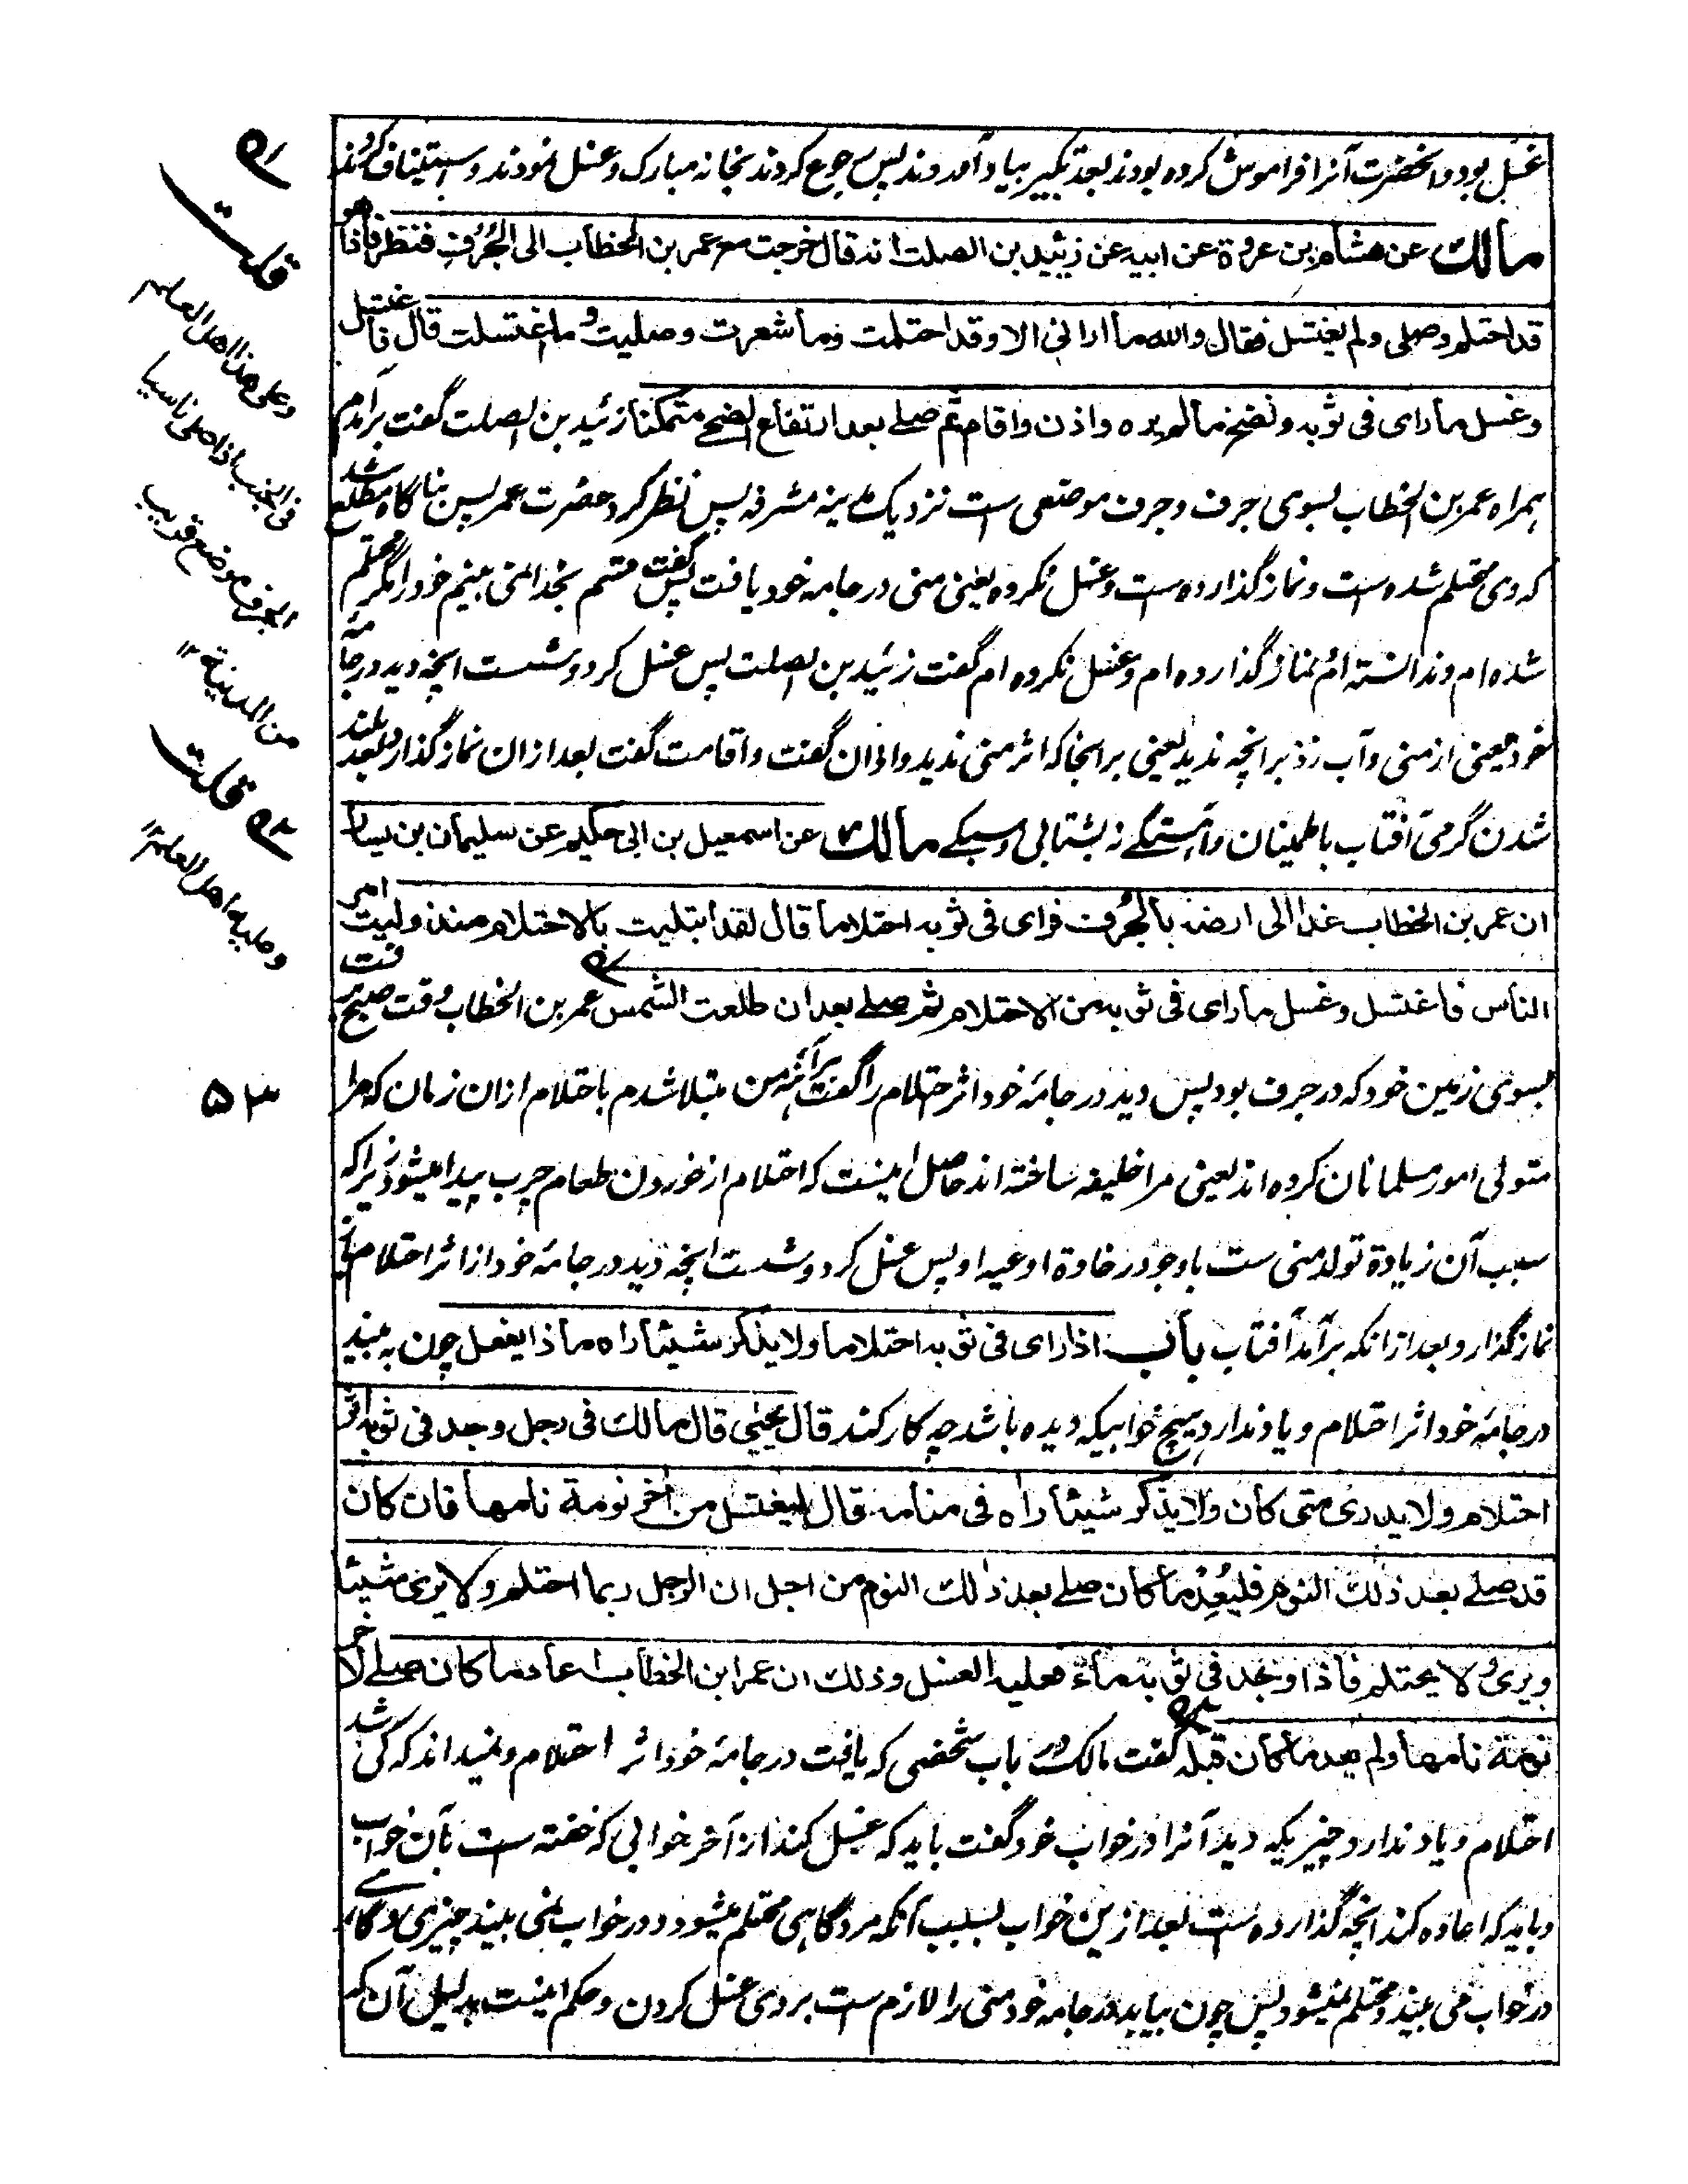 غسل بود و آنحضرت آنرا فراموش کرده بودند بعد تکبیر بیاد آوردند پس رجوع کردند بخانه مبارک و غسل نمودند و استیناف کردند
مالك عن هشام بن عروة عن ابيه عن زييد بن الصلت انه قال خرجت مع عمر بن الخطاب الى الجُرُف فنظر فاذا هو
قد احتلم وصلى ولم يغتسل فقال والله ما ارانى الا وقد احتلمت وما شعرت وصليت وما اغتسلت قال فاغتسل
وغسل ما راى فى ثوبه ونضح ما لم يره واذن واقام ثم صلے بعد ارتفاع الضحے متمكنا زئید بن الصلت گفت برآمدم
همراه عمر بن الخطاب بسوی جرف و جرف موضعی است نزدیک مدینه مشرفه پس نظر کرد حضرت عمر پس ناگاه مطلع شد
که وی محتلم شده است و نماز گذارده است و غسل نکرده یعنی منی در جامه خود یافت پس گفت قسم بخدا نمی بینم خود را مگر محتلم
شده ام و ندانسته ام و نماز گذارده ام و غسل نکرده ام گفت زئید بن الصلت پس غسل کرد و شست انچه دید در جامۀ
خود یعنی از منی و آب زد بر انچه ندید یعنی بر انجا که اثر منی ندید و اذان گفت و اقامت گفت بعد ازان نماز گذارد بعد بلند
شدن گرمی آفتاب باطمینان و آهستگے نه بشتابی و سبکے مالك عن اسمعيل بن ابى حكيم عن سليمان بن يسار
ان عمر بن الخطاب غدا الى ارضه بالجُرُف فراى فى ثوبه احتلاما قال لقد ابتليت بالاحتلام منذ وليت امر
الناس فاغتسل وغسل ما راى فى ثوبه من الاحتلام ثم صلے بعد ان طلعت الشمس عمر بن الخطاب وقت صبح رفت
بسوی زمین خود که در جرف بود پس دید در جامۀ خود اثر احتلام را گفت هر آئنه من مبتلا شدم باحتلام ازان زمان که مرا
متولی امور مسلمانان کرده اند یعنی مرا خلیفه ساخته اند حاصل اینست که احتلام از خوردن طعام چرب پیدا میشود زیرا که
سبب آن زیادة تولد منی ست باوجود رخاوة اوعیه او پس غسل کرد و شست انچه دید در جامۀ خود از اثر احتلام
نماز گذارد بعد ازانکه برآمد آفتاب باب اذا راى فى ثوبه احتلاما ولا يذكر شيئا راه ماذا يفعل چون به بیند
در جامۀ خود اثر احتلام و یاد ندارد هیچ خوابیکه دیده باشد چه کار کند قال يحيى قال مالك فى رجل وجد فى ثوبه اثر
احتلام ولا يدرى متى كان ولا يذكر شيئا راه فى منامه قال ليغتسل من اخر نومة نامها فان كان
قد صلے بعد ذلك النوم فليُعِدْ ما كان صلے بعد ذلك النوم من اجل ان الرجل ربما احتلم ولا يرى شيئا
ويرى ولا يحتلم فاذا وجد فى ثوبه ماء فعليه الغسل وذلك ان عمر ابن الخطاب اعاد ما كان صلے لاخر
نومة نامها ولم يعد ما كان قبله گفت مالک در باب شخصی که یافت در جامۀ خود اثر احتلام و نمیداند که کی شد
احتلام و یاد ندارد چیزیکه دید آنرا در خواب خود گفت باید که غسل کند از آخر خوابی که خفته است بآن خواب
و باید که اعاده کند انچه گذارده ست بعد ازین خواب بسبب آنکه مرد گاهی محتلم میشود و در خواب نمی بیند چیزی و گاهے
در خواب می بیند و محتلم نمیشود پس چون بیابد در جامه خود منی را لازم ست بر وی غسل کردن و حکم اینست بدلیل آن که
قلت
وعلى هذا اهل العلم
فى الجنب اذا صلى ناسيا
الجرف موضع قريب
من المدينة ١٢
قلت
وعليه اهل العلم ١٢
٥٣